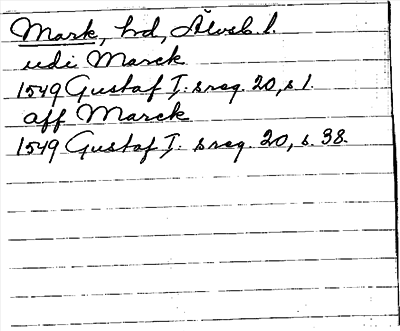 Mark, hd, Älvsb. l.
udi Marck
1549 Gustaf I: s reg. 20, s 1.
aff Marck
1549 Gustaf I: s reg. 20, s. 38.